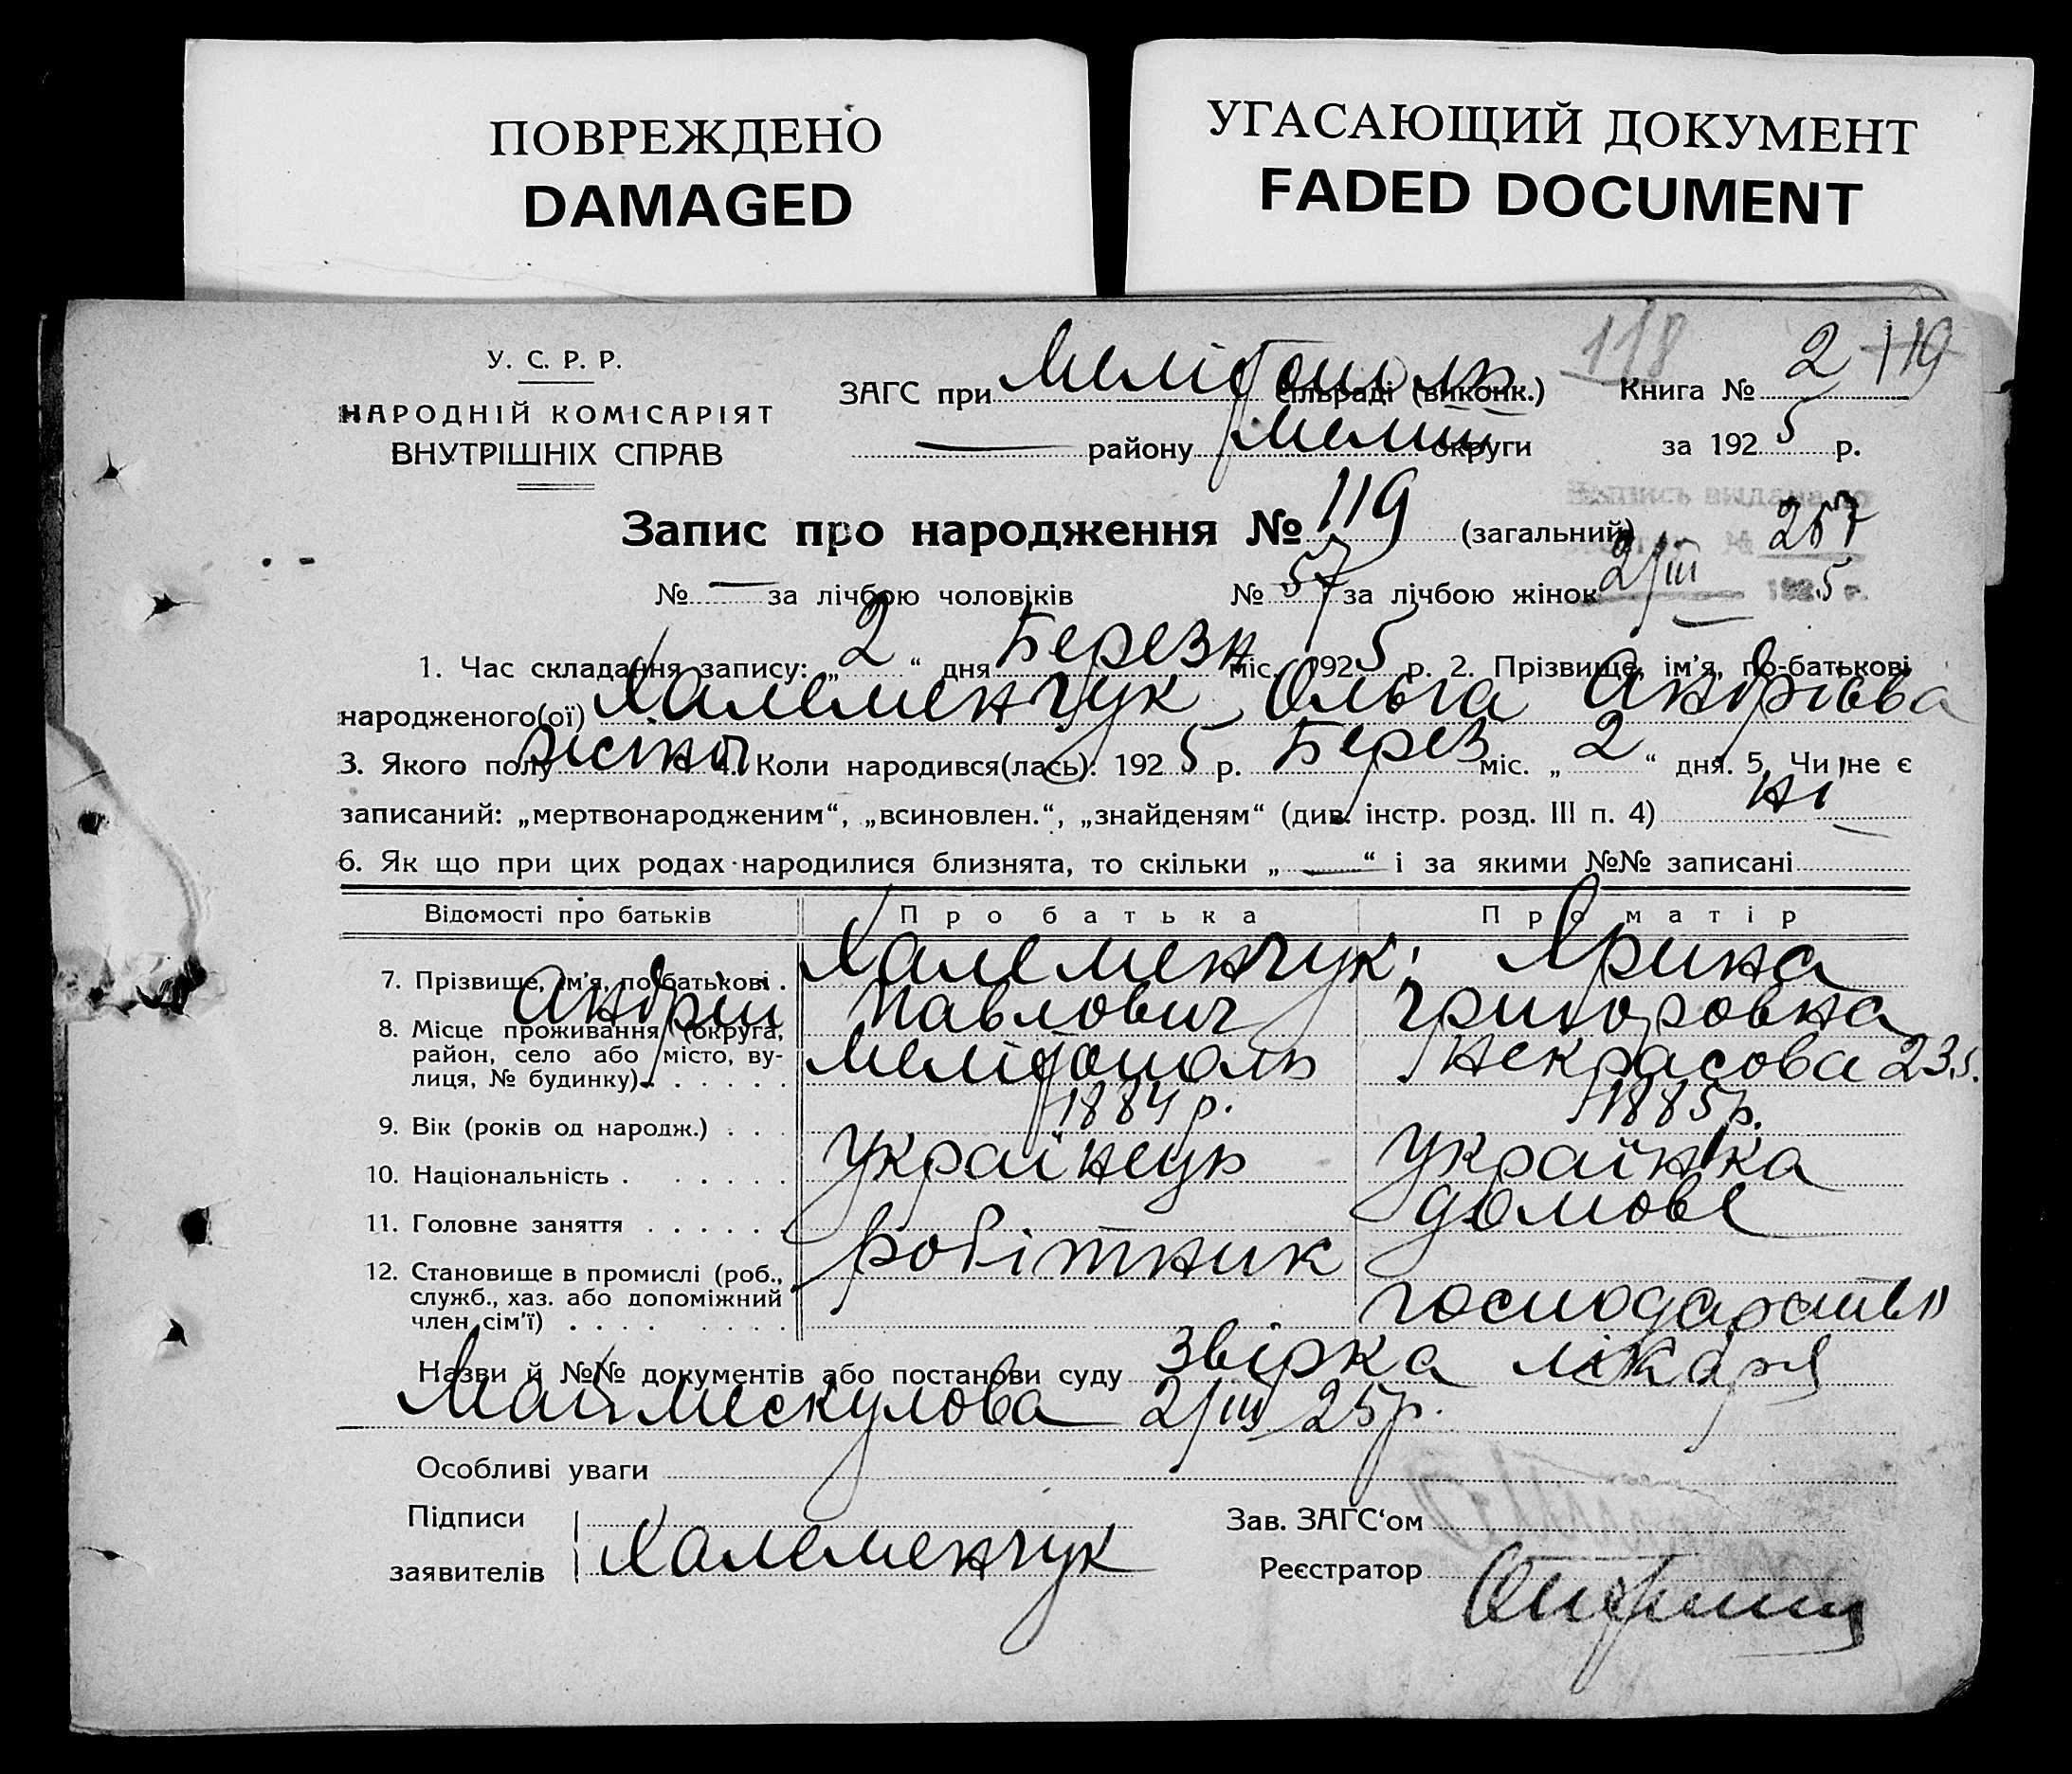 ПОВРЕЖДЕНО
DAMAGED
УГАСАЮЩИЙ ДОКУМЕНТ
FADED DOCUMENT
У. С. Р. Р.
НАРОДНІЙ КОМІСАРІЯТ
ВНУТРІШНІХ СПРАВ
118
ЗАГС при Мелітополь сільраді (виконк.) Книга № 2 119
— району Меліт округи за 1925 р.
Запис про народження № 119 (загальний)
257
№ — за лічбою чоловіків № 57 за лічбою жінок 2/III 1925 р.
1. Час складання запису: „ 2 “ дня Березн міс. 1925 р. 2. Прізвище, ім'я, по-батькові
народженого(ої) Халеменчук Ольга Андрієва
3. Якого полу жіноч 4. Коли народився(лась): 1925 р. Берез міс. „ 2 “ дня. 5. Чи не є
записаний: „мертвонародженим“, „всиновлен.“, „знайденям“ (див. інстр. розд. III п. 4) ні
6. Як що при цих родах народилися близнята, то скільки „ — “ і за якими №№ записані
Відомості про батьків Про батька Про матір
7. Прізвище, ім'я, по батькові . Халеменчук Ярина
Андрій Павлович Григоровна
8. Місце проживання (округа,
район, село або місто, ву-
лиця, № будинку) . . . . . . Мелітополь Некрасова 23.
9. Вік (років од народж.) . . . 1884 р. 1885 р.
10. Національність . . . . . . українець українка
11. Головне заняття . . . . . . робітник домове
12. Становище в промислі (роб.,
служб., хаз. або допоміжний
член сім'ї) . . . . . . . господарство
Назви й №№ документів або постанови суду Звірка лікаря
2/III 25 р.
Особливі уваги
Підписи
заявителів Халеменчук
Зав. ЗАГС‘ом
Реєстратор